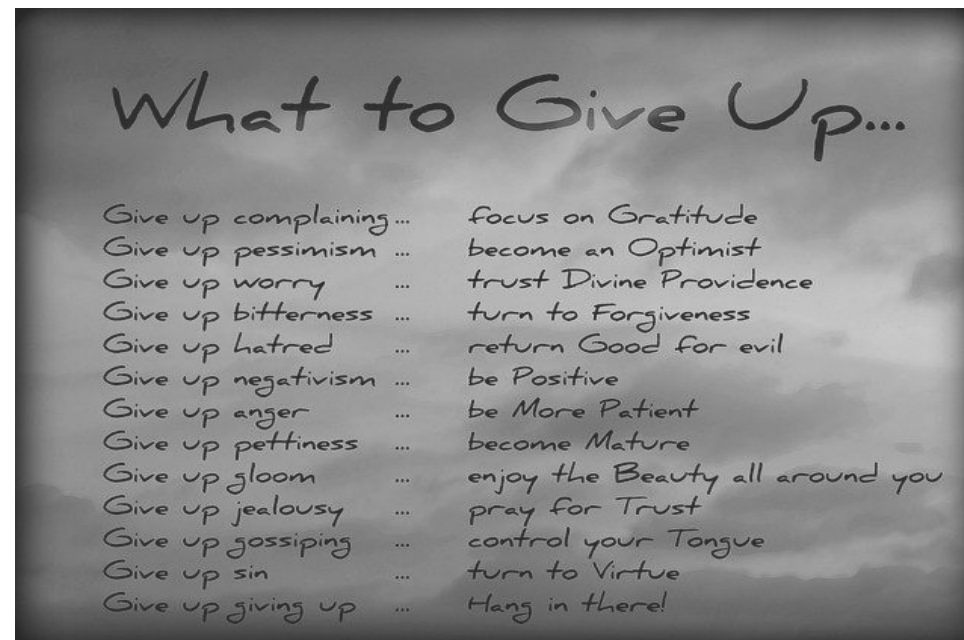 What to Give Up...
Give up complaining... focus on Gratitude
Give up pessimism ... become an Optimist
Give up worry ... trust Divine Providence
Give up bitterness ... turn to Forgiveness
Give up hatred ... return Good for evil
Give up negativism ... be Positive
Give up anger ... be More Patient
Give up pettiness ... become Mature
Give up gloom ... enjoy the Beauty all around you
Give up jealousy ... pray for Trust
Give up gossiping ... control your Tongue
Give up sin ... turn to Virtue
Give up giving up ... Hang in there!